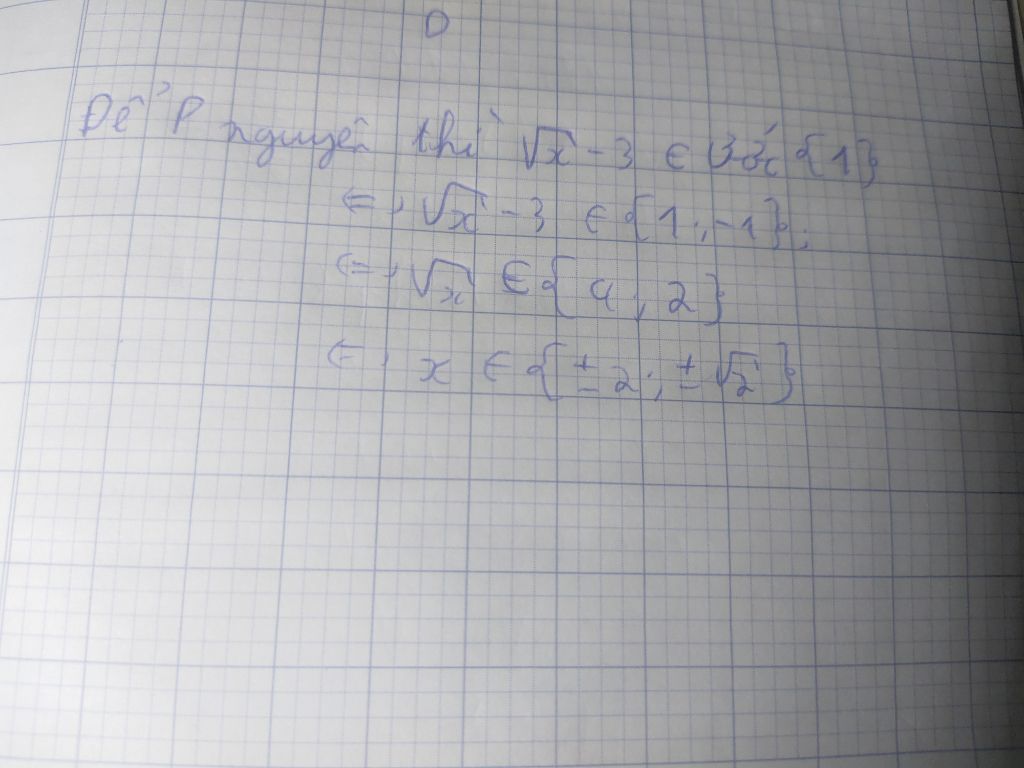 D
Để P nguyên thì √x - 3 ∈ Ước {1}
<=> √x - 3 ∈ {1; -1};
<=> √x ∈ {4; 2}
<=> x ∈ {±2; ±√2}